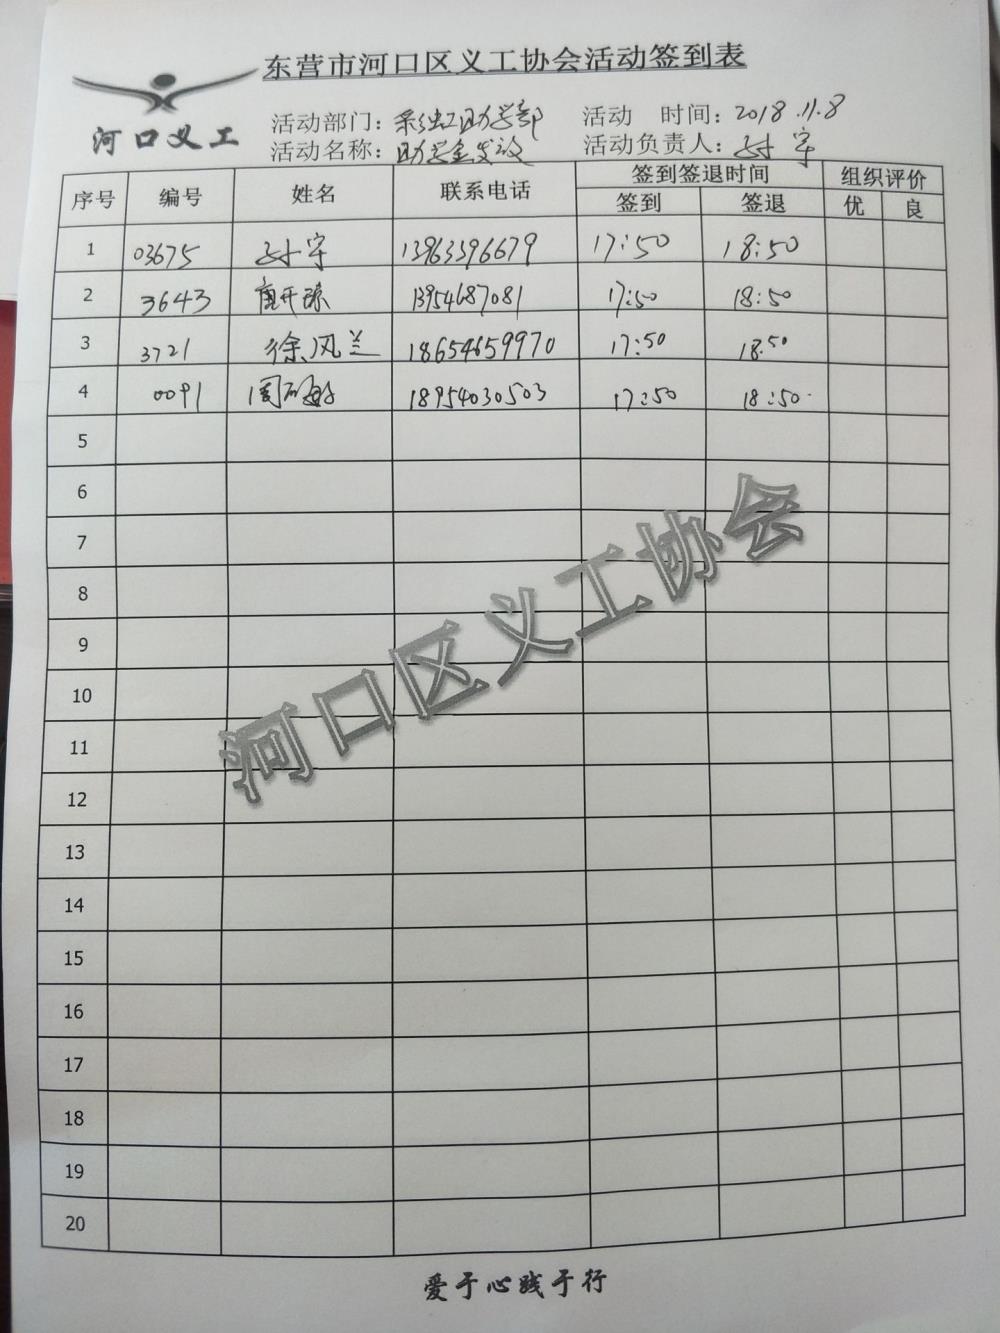 东营市河口区义工协会活动签到表
河口义工
活动部门：彩虹助学部 活动 时间：2018.11.8
活动名称：助学金发放 活动负责人：宇
序号 编号 姓名 联系电话 签到签退时间 组织评价
签到 签退 优 良
1 03675 宇 13963396679 17:50 18:50
2 3643 13954687081 17:50 18:50
3 3721 徐风兰 18654659970 17:50 18:50
4 0091 周 18954030503 17:50 18:50
5
6
7
8
9
10
11
12
13
14
15
16
17
18
19
20
河口区义工协会
爱于心践于行